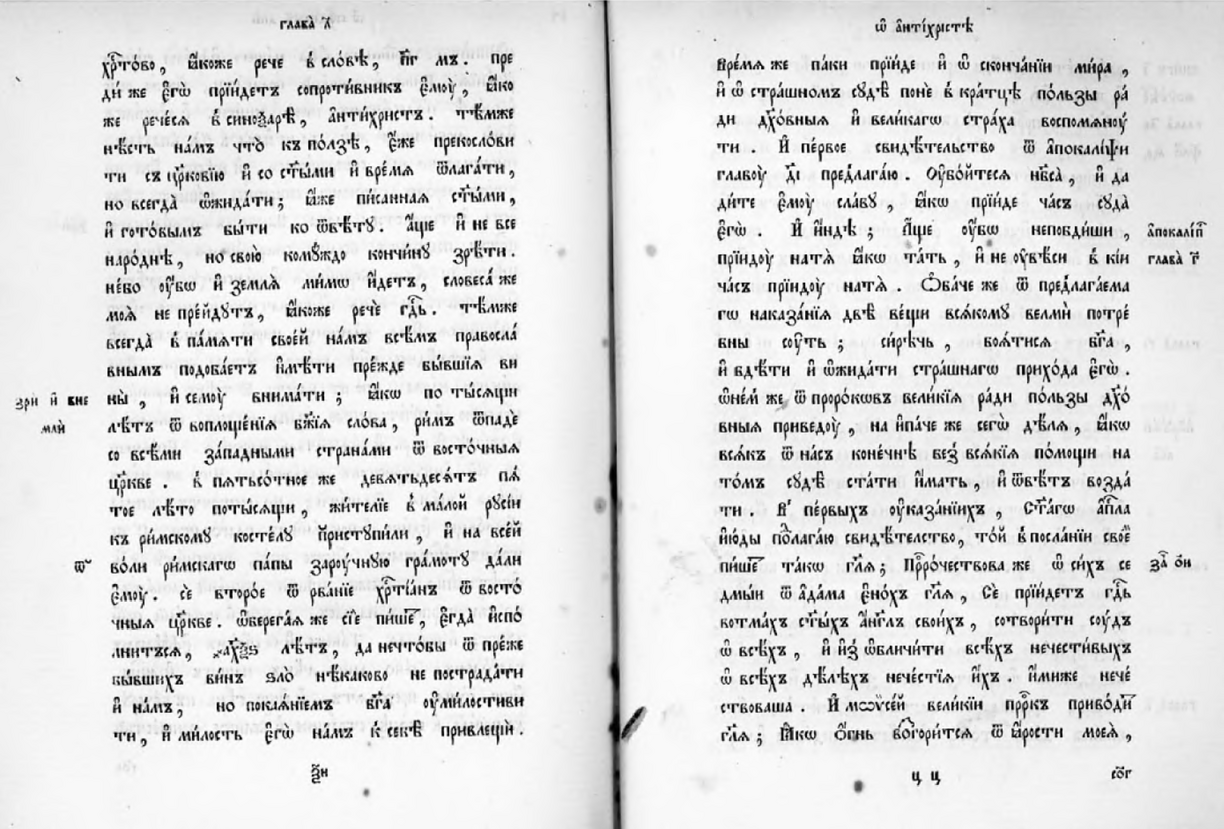 глава̀ л҃
хрⷭ҇то́во, ꙗ҆́коже рече в сло́вѣ, г҃г мъ. пре
ди́ же є҆гѡ̀ прїи́детъ сопроти́вникъ є҆моу̀, ꙗ҆́ко
же рече́сѧ в синоѯа́рѣ, а҆нти́христъ. тѣ́мже
нѣ́сть на́мъ что̀ къ по́лзѣ, є҆́же прекосло́ви
ти съ цр҃ковїю и҆ со ст҃ы́ми и҆ вре́мѧ ѿлага́ти,
но всегда̀ ѡ҆жида́ти; ꙗ҆́же пи́санная ст҃ы́ми,
и҆ гото́вымъ бы́ти ко ѿвѣ́ту. а҆́ще и҆ не все
наро́днѣ, но свою̀ комꙋ́ждо кончи́ну зрѣ́ти.
не́бо оу҆́бо и҆ землѧ̀ ми́мѡ и҆́детъ, словеса́ же
моѧ̀ не пре́йдутъ, ꙗ҆́коже речѐ гдⷭ҇ь. тѣ́мже
всегда̀ в па́мѧти свое́й на́мъ всѣ́мъ правосла́
внымъ подоба́етъ и҆мѣ́ти пре́жде бы́вшїѧ ви
ны̀, и҆ семоу̀ внима́ти; ꙗ҆́кѡ по ты́сѧщи
лѣ́тъ ѿ воплоще́нїѧ бж҃їѧ сло́ва, ри́мъ ѿпадѐ
со всѣ́ми за́падными страна́ми ѿ восто́чныѧ
цр҃кве. в пѧтьсо́тное же девѧтьдесѧ́тъ пѧ́
тое лѣ́то поты́сѧщи, жи́телїе в ма́лой руси́и
къ ри́мскому косте́лу приступи́ли, и҆ на все́й
во́ли ри́мскагѡ па́пы зароу́чную гра́моту да́ли
є҆моу̀. сѐ второ́е ѿрва́нїе хрⷭ҇тїа́нъ ѿ восто́
чныѧ цр҃кве. ѡ҆берега́ѧ же сїе́ пи́шеⷮ, є҆гда̀ и҆спо́
лнитъсѧ, ҂а҃хѯѕ лѣ́тъ, да нечто́бы ѿ пре́же
бы́вшихъ ви́нъ ѕло̀ нѣ́каково не пострада́ти
и҆ на́мъ, но покаѧ́нїемъ бг҃а оу҆ми́лостиви
ти, и҆ ми́лость є҆гѡ̀ на́мъ к себѣ̀ привлещѝ.
зрѝ и҆ вне
млѝ
ѿ
ѯ҃и
ѡ҆ а҆нти́христѣ
Вре́мѧ же па́ки прїи́де и҆ ѡ҆ сконча́нїи ми́ра,
и҆ ѡ҆ стра́шномъ судѣ̀ понѐ в кра́тцѣ по́льзы ра́
ди дх҃о́вныѧ и҆ вели́кагѡ стра́ха воспомѧноу́
ти. И҆ пе́рвое свидѣ́тельство ѿ а҆пока́лиѱи
главоу̀ д҃і предлага́ю. Оу҆бо́йтесѧ нб҃са̀, и҆ да
ди́те є҆моу̀ сла́ву, ꙗ҆́кѡ прїи́де ча́съ суда̀
є҆гѡ̀. И҆ и҆́ндѣ; А҆́ще оу҆́бѡ непобди́ши,
прїидоу̀ натѧ̀ ꙗ҆́кѡ та́ть, и҆ не оу҆вѣ́си в кі́и
ча́съ прїидоу̀ натѧ̀. Ѻ҆ба́че же ѿ предлага́ема
гѡ наказа́нїѧ двѣ̀ ве́щи всѧ́кому велмѝ потре́
бны соу́ть; си́рѣчь, боѧ́тисѧ бг҃а,
и҆ бдѣ́ти и҆ ѡ҆жида́ти стра́шнагѡ прихо́да є҆гѡ̀.
ѡ҆не́м же ѿ проро́ковъ вели́кїѧ ра́ди по́льзы дх҃о́
вныѧ приведоу̀, на и҆па́че же сегѡ̀ дѣ́лѧ, ꙗ҆́кѡ
всѧ́къ ѿ на́съ коне́чнѣ без всѧ́кїѧ по́мощи на
то́мъ судѣ̀ ста́ти и҆́мать, и҆ ѿвѣ́тъ возда́
ти. В пе́рвыхъ оу҆каза́нїихъ, Ст҃а́гѡ а҆пⷭ҇ла
и҆ю́ды пⷣолага́ю свидѣ́телство, то́й в посла́нїи своеⷨ
пи́шеⷮ та́кѡ гл҃ѧ; Прⷪ҇ро́чествова же ѡ҆ си́хъ се
дмы́и ѿ а҆да́ма є҆но́хъ гл҃ѧ, Сѐ прїи́детъ гдⷭ҇ь
во тма́хъ ст҃ы́хъ а҆́нгл҃ъ свои́хъ, сотвори́ти соу́дъ
ѡ҆ всѣ́хъ, и҆ и҆з ѡ҆бличи́ти всѣ́хъ нечести́выхъ
ѡ҆ всѣ́хъ дѣ́лѣхъ нече́стїѧ и҆́хъ. и҆́миже нече́
ствоваша. И҆ мѡѷсе́й вели́кїи прⷪ҇ро́къ приво́диⷮ
гл҃ѧ; Ꙗ҆́кѡ ѻ҆́гнь возгори́тсѧ ѿ ꙗ҆́рости моеѧ̀,
а҆покалиⷫ҇
глава̀ г҃
за҃ ѻ҆́и
ц ц
со҃г